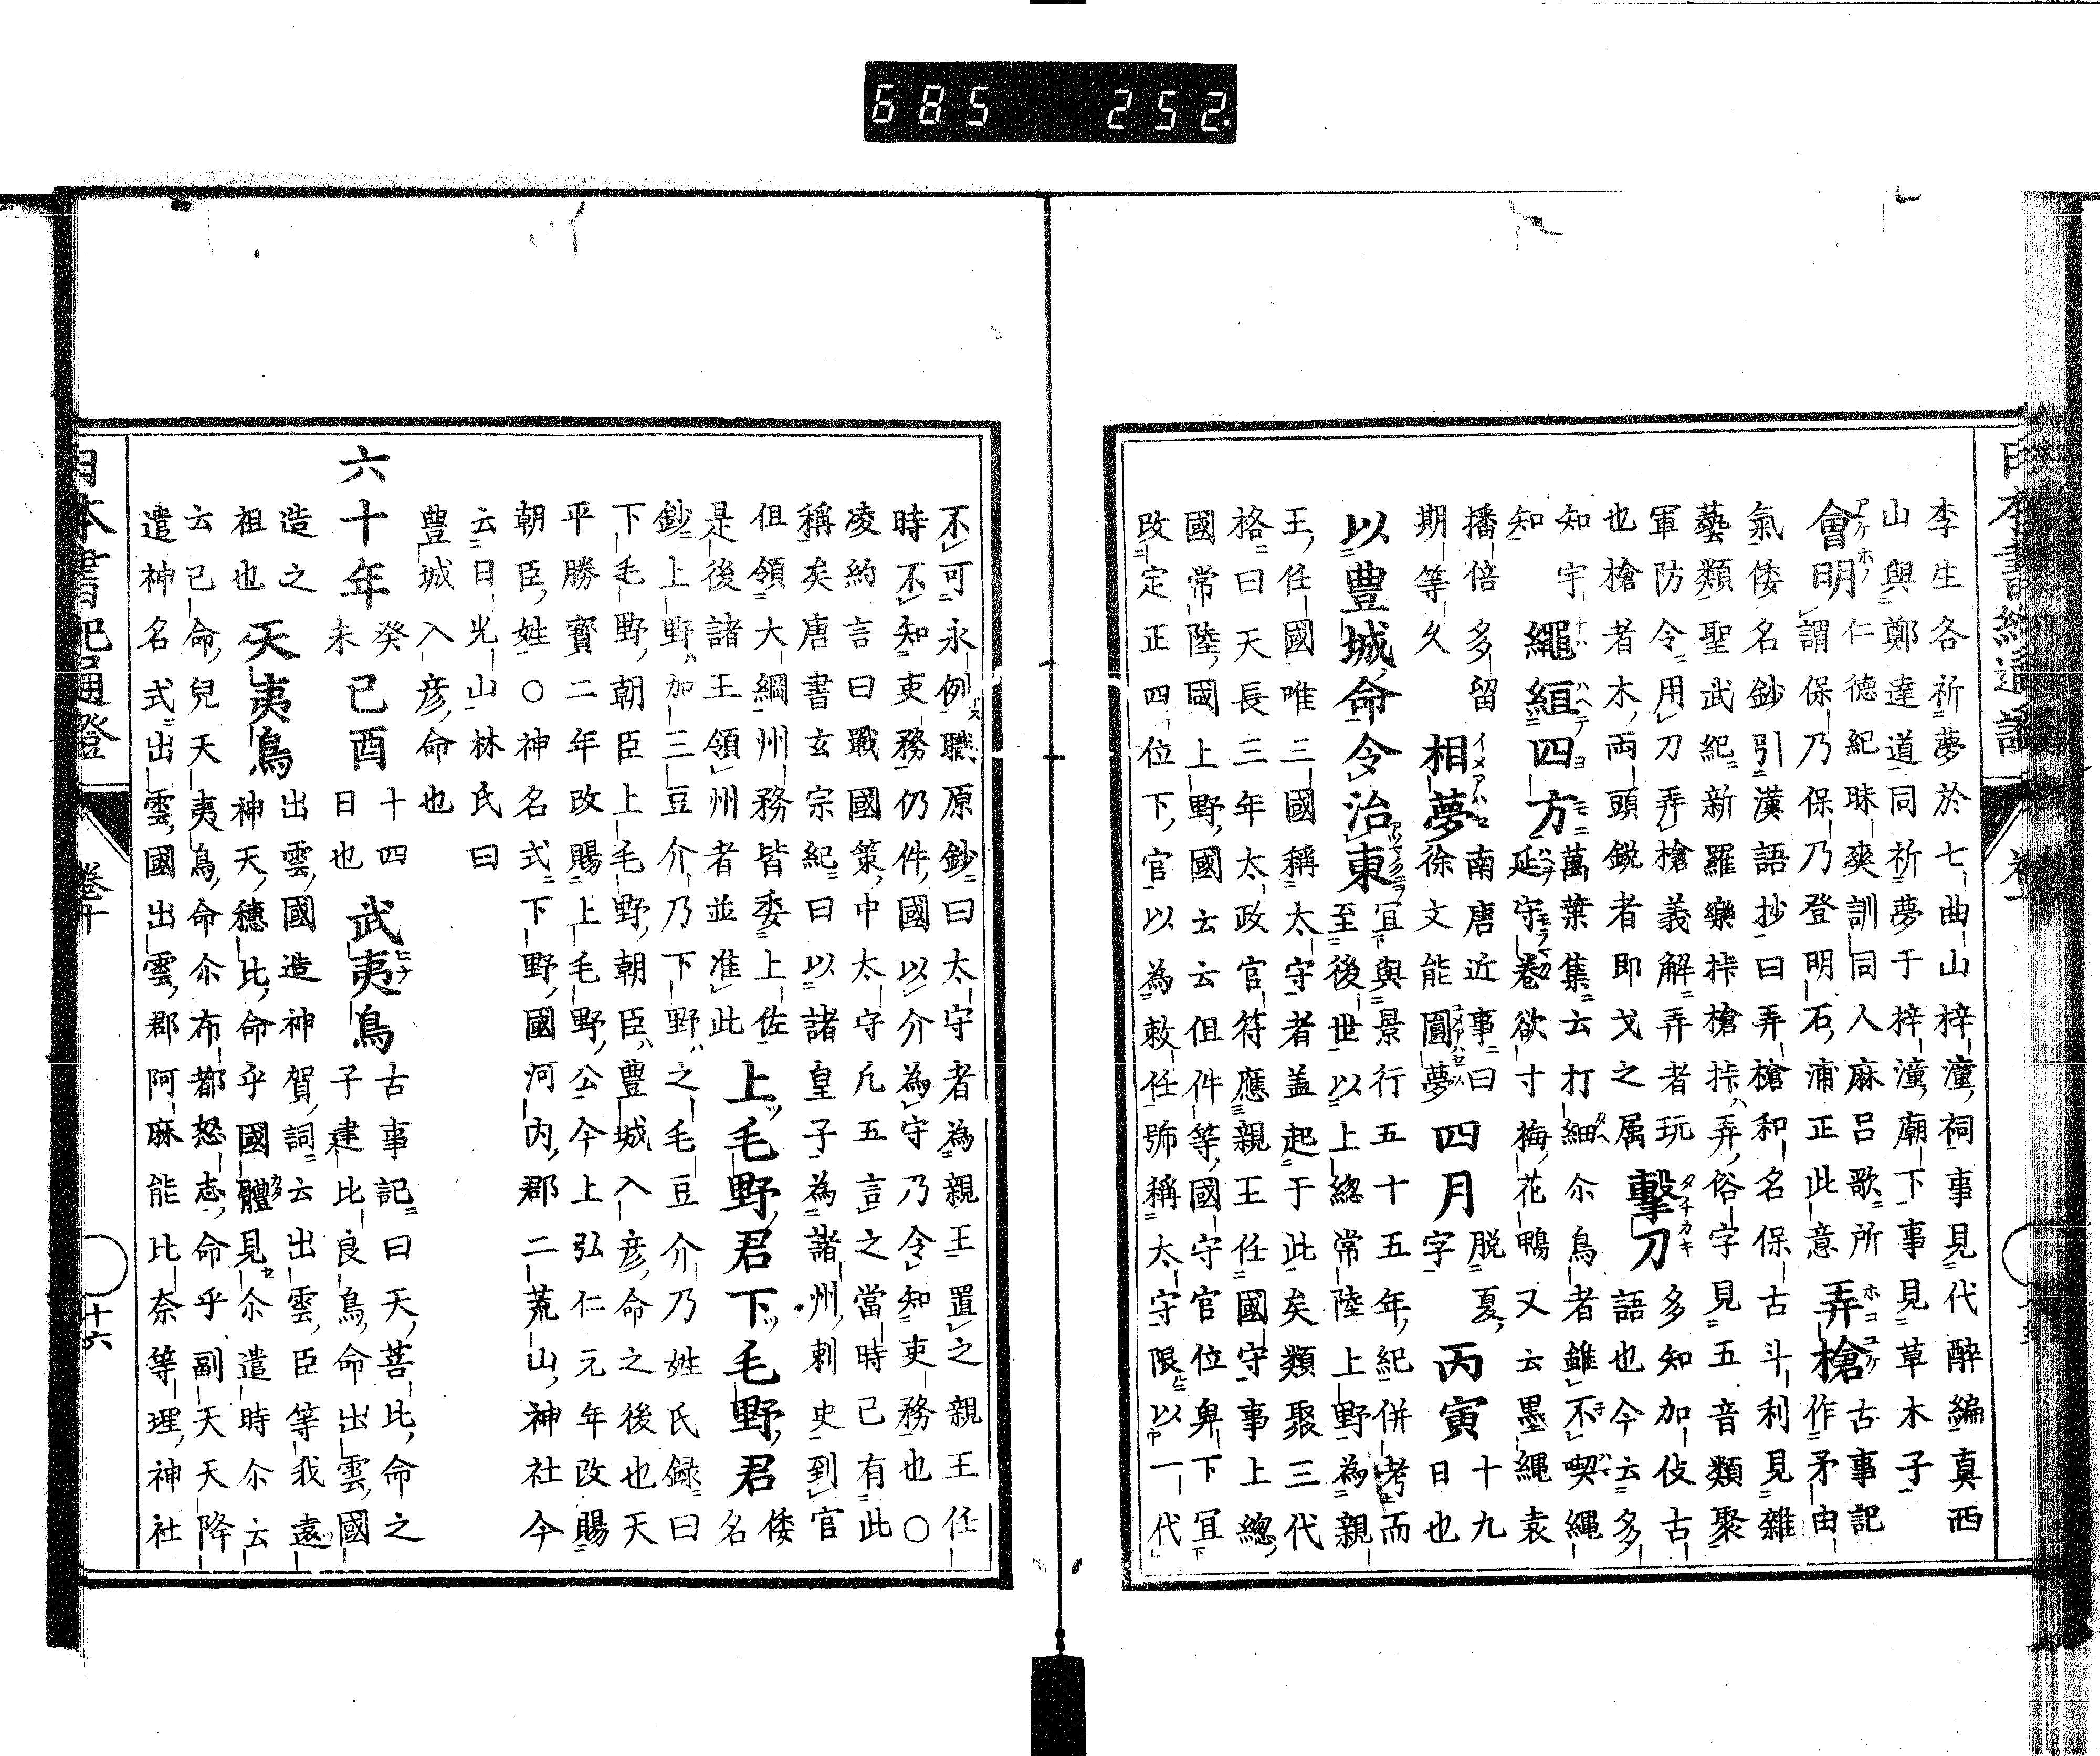 685 252
李生各祈夢於七曲山梓潼祠事見代醉編真西
山與鄭達道同祈夢于梓潼廟下事見草木子
會明アケホノ仁徳紀昧爽訓同人麻呂歌所
謂保乃保乃登明石浦正此意
弄槍ホコユケ古事記
作矛由
氣倭名鈔引漢語抄曰弄槍和名保古斗利見雜
藝類聖武紀新羅樂𢪸槍𢪸ハ弄俗字見五音類聚
軍防令用刀弄槍義解弄者玩
也槍者木両頭鋭者即戈之属
擊刀タチカキ多知加伎古
語也今云多
知
知宇
繩絙四方ナハハヘテヨモニ萬葉集云打細尒鳥者雖不喫繩
延守巻欲寸梅花鴨又云墨繩袁
播倍多留
期等久
相夢イメアハセ南唐近事曰
徐文能圓夢
四月脱夏
字
丙寅十九
日也
以豊城命令治東冝與景行五十五年紀併考而
至後世以上總常陸上野為親
王任國唯三國稱太守者盖起于此矣類聚三代
格曰天長三年太政官符應親王任國守事上總
國常陸國上野國云云但件等國守官位卑下冝
改定正四位下官以為敕任號稱太守限以一代
不可永例職原鈔曰太守者為親王置之親王任
時不知吏務仍件國以介為守乃令知吏務也○
凌約言曰戰國策中太守凡五言之當時已有此
稱矣唐書玄宗紀曰以諸皇子為諸州刺史到官
但領大綱州務皆委上佐
是後諸王領州者並准此
上毛野君下毛野君倭
名
鈔上野ハ加三豆介乃下野ハ之毛豆介乃姓氏録曰
下毛野朝臣上毛野朝臣ハ豊城入彦命之後也天
平勝寶二年改賜上毛野公今上弘仁元年改賜
朝臣姓○神名式下野國河内郡二荒山神社今
云日光山林氏曰
豊城入彦命也
六十年癸
未
己酉十四
日也
武夷鳥ヒナ古事記曰天菩比命之
子建比良鳥命出雲國
造之
祖也
天夷鳥出雲國造神賀詞云出雲臣等我遠
神天穂比命乎國體見尒遣時尒云
云己命兒天夷鳥命尒布都怒志命乎副天天降
遣神名式出雲國出雲郡阿麻能比奈等理神社
日本書紀通證
十六